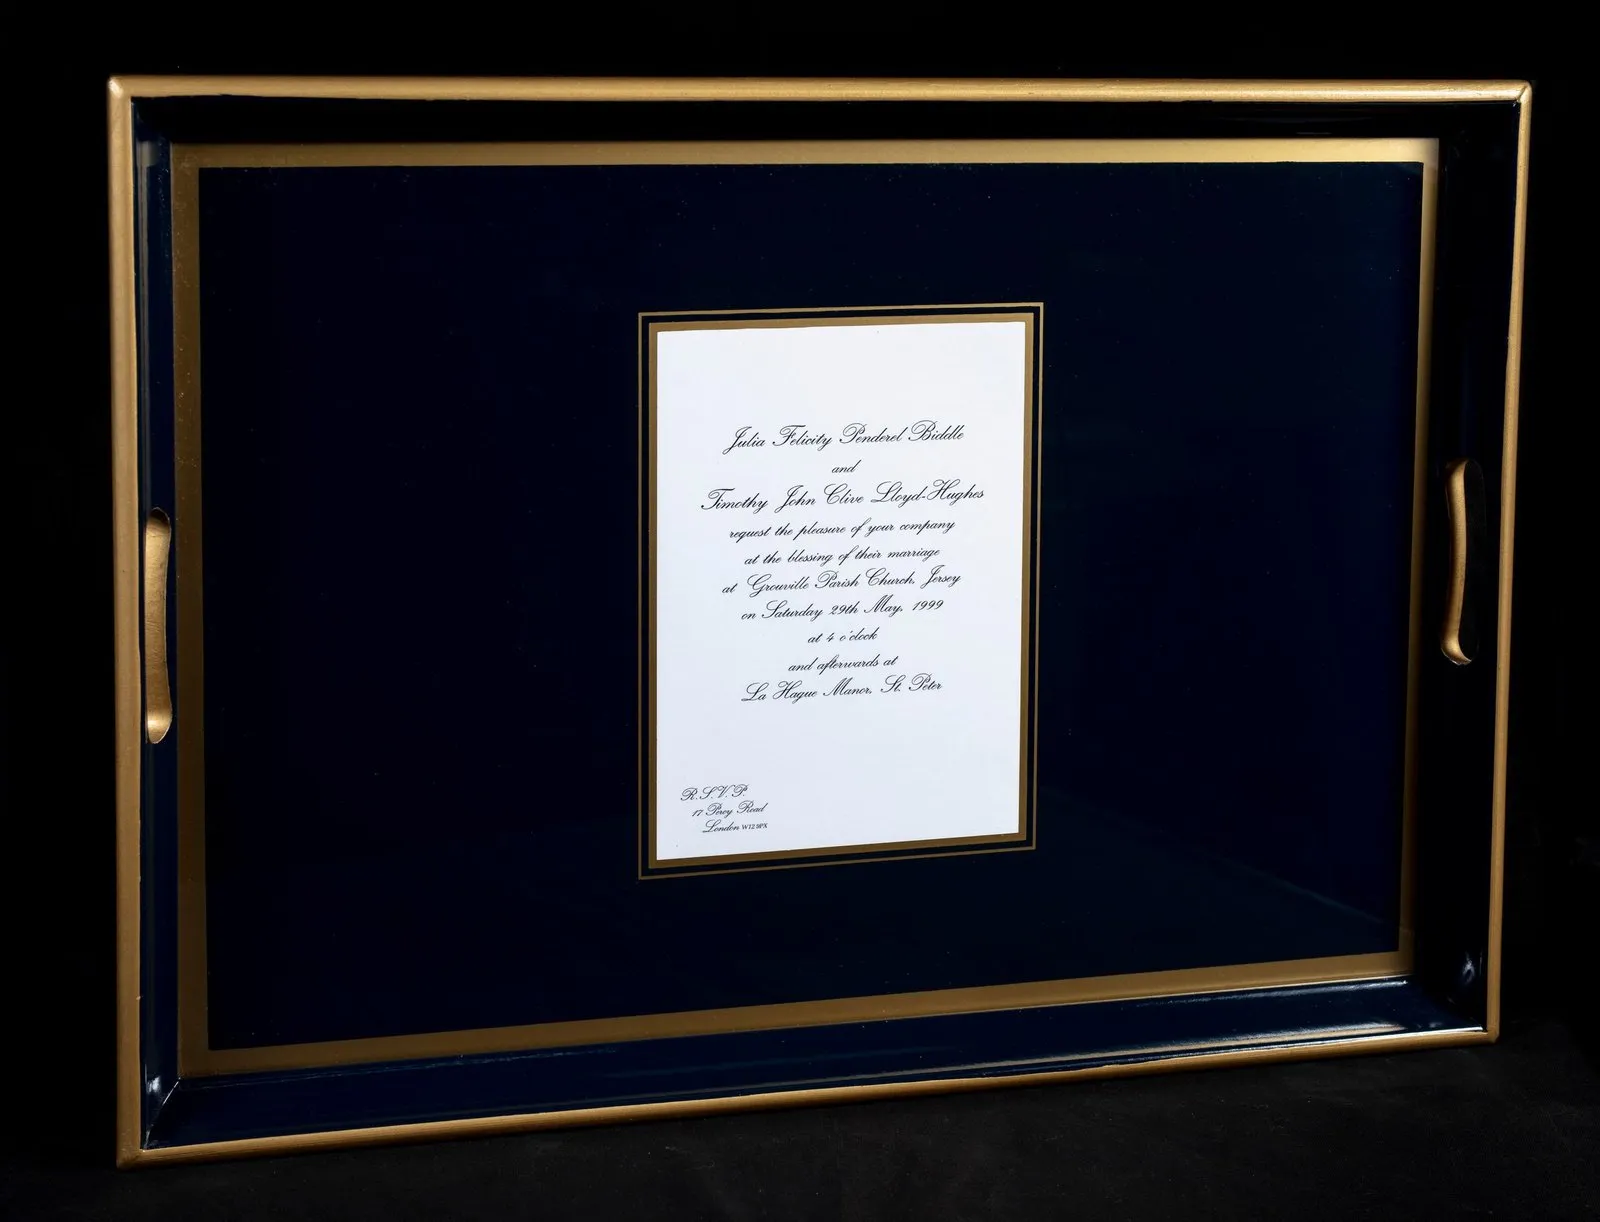 Julia Felicity Penderel Biddle
and
Timothy John Clive Lloyd-Hughes
request the pleasure of your company
at the blessing of their marriage
at Grouville Parish Church, Jersey
on Saturday 29th May, 1999
at 4 o'clock
and afterwards at
La Hague Manor, St. Peter
R.S.V.P.
17 Percy Road
London W12 9PX